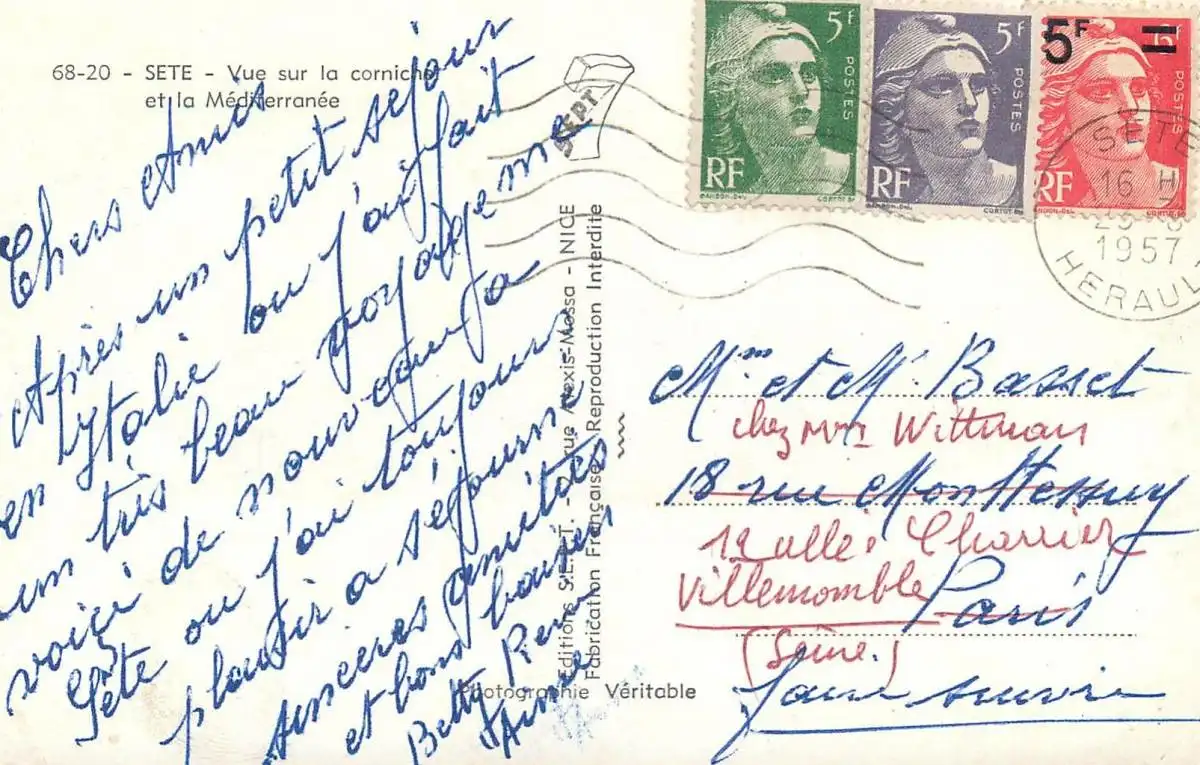 68-20 - SETE - Vue sur la corniche
et la Méditerranée
Chers Amis
Après un petit sejour
en Ytalie ou j'ai fait
un très beau voyage me
voiçi de nouveau a
Sète ou j'ai toujours
plaisir a séjourne
sinceres amitiés
et bons baisers
Betty René
Editions S.E.P.T. - rue Alexis-Mossa - NICE
Fabrication Française Reproduction Interdite
Photographie Véritable
SEPT
5F
POSTES
RF
5F
POSTES
RF
5F =
6F
POSTES
RF
SETE
16 H
1957
HERAUL
Mm et Mr Basset
chez Wittman
18 rue Monttessuy
12 allée Charrier
Villemomble Paris
(Seine.)
faire suivre